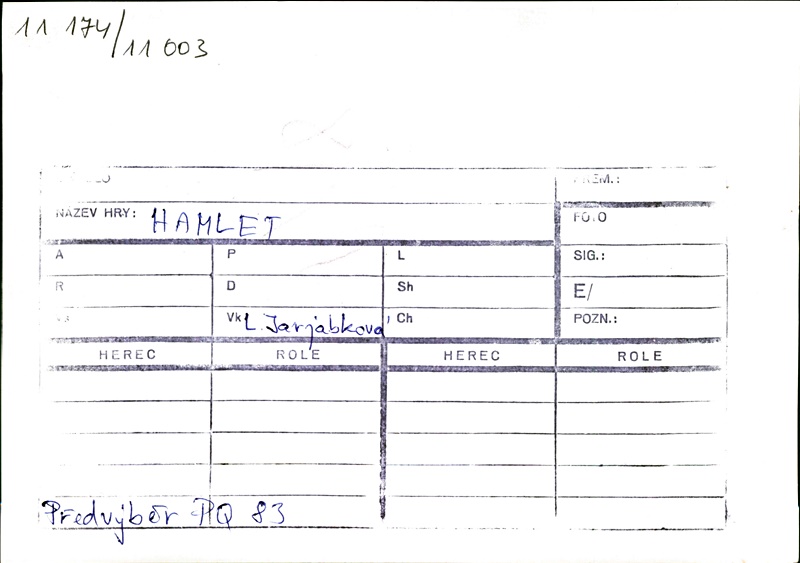 11 174/11 003
NÁZEV HRY: HAMLET
FOTO
A P L SIG.:
R D Sh E/
Vk L. Jarjabková Ch POZN.:
HEREC ROLE HEREC ROLE
Předvýběr PQ 83